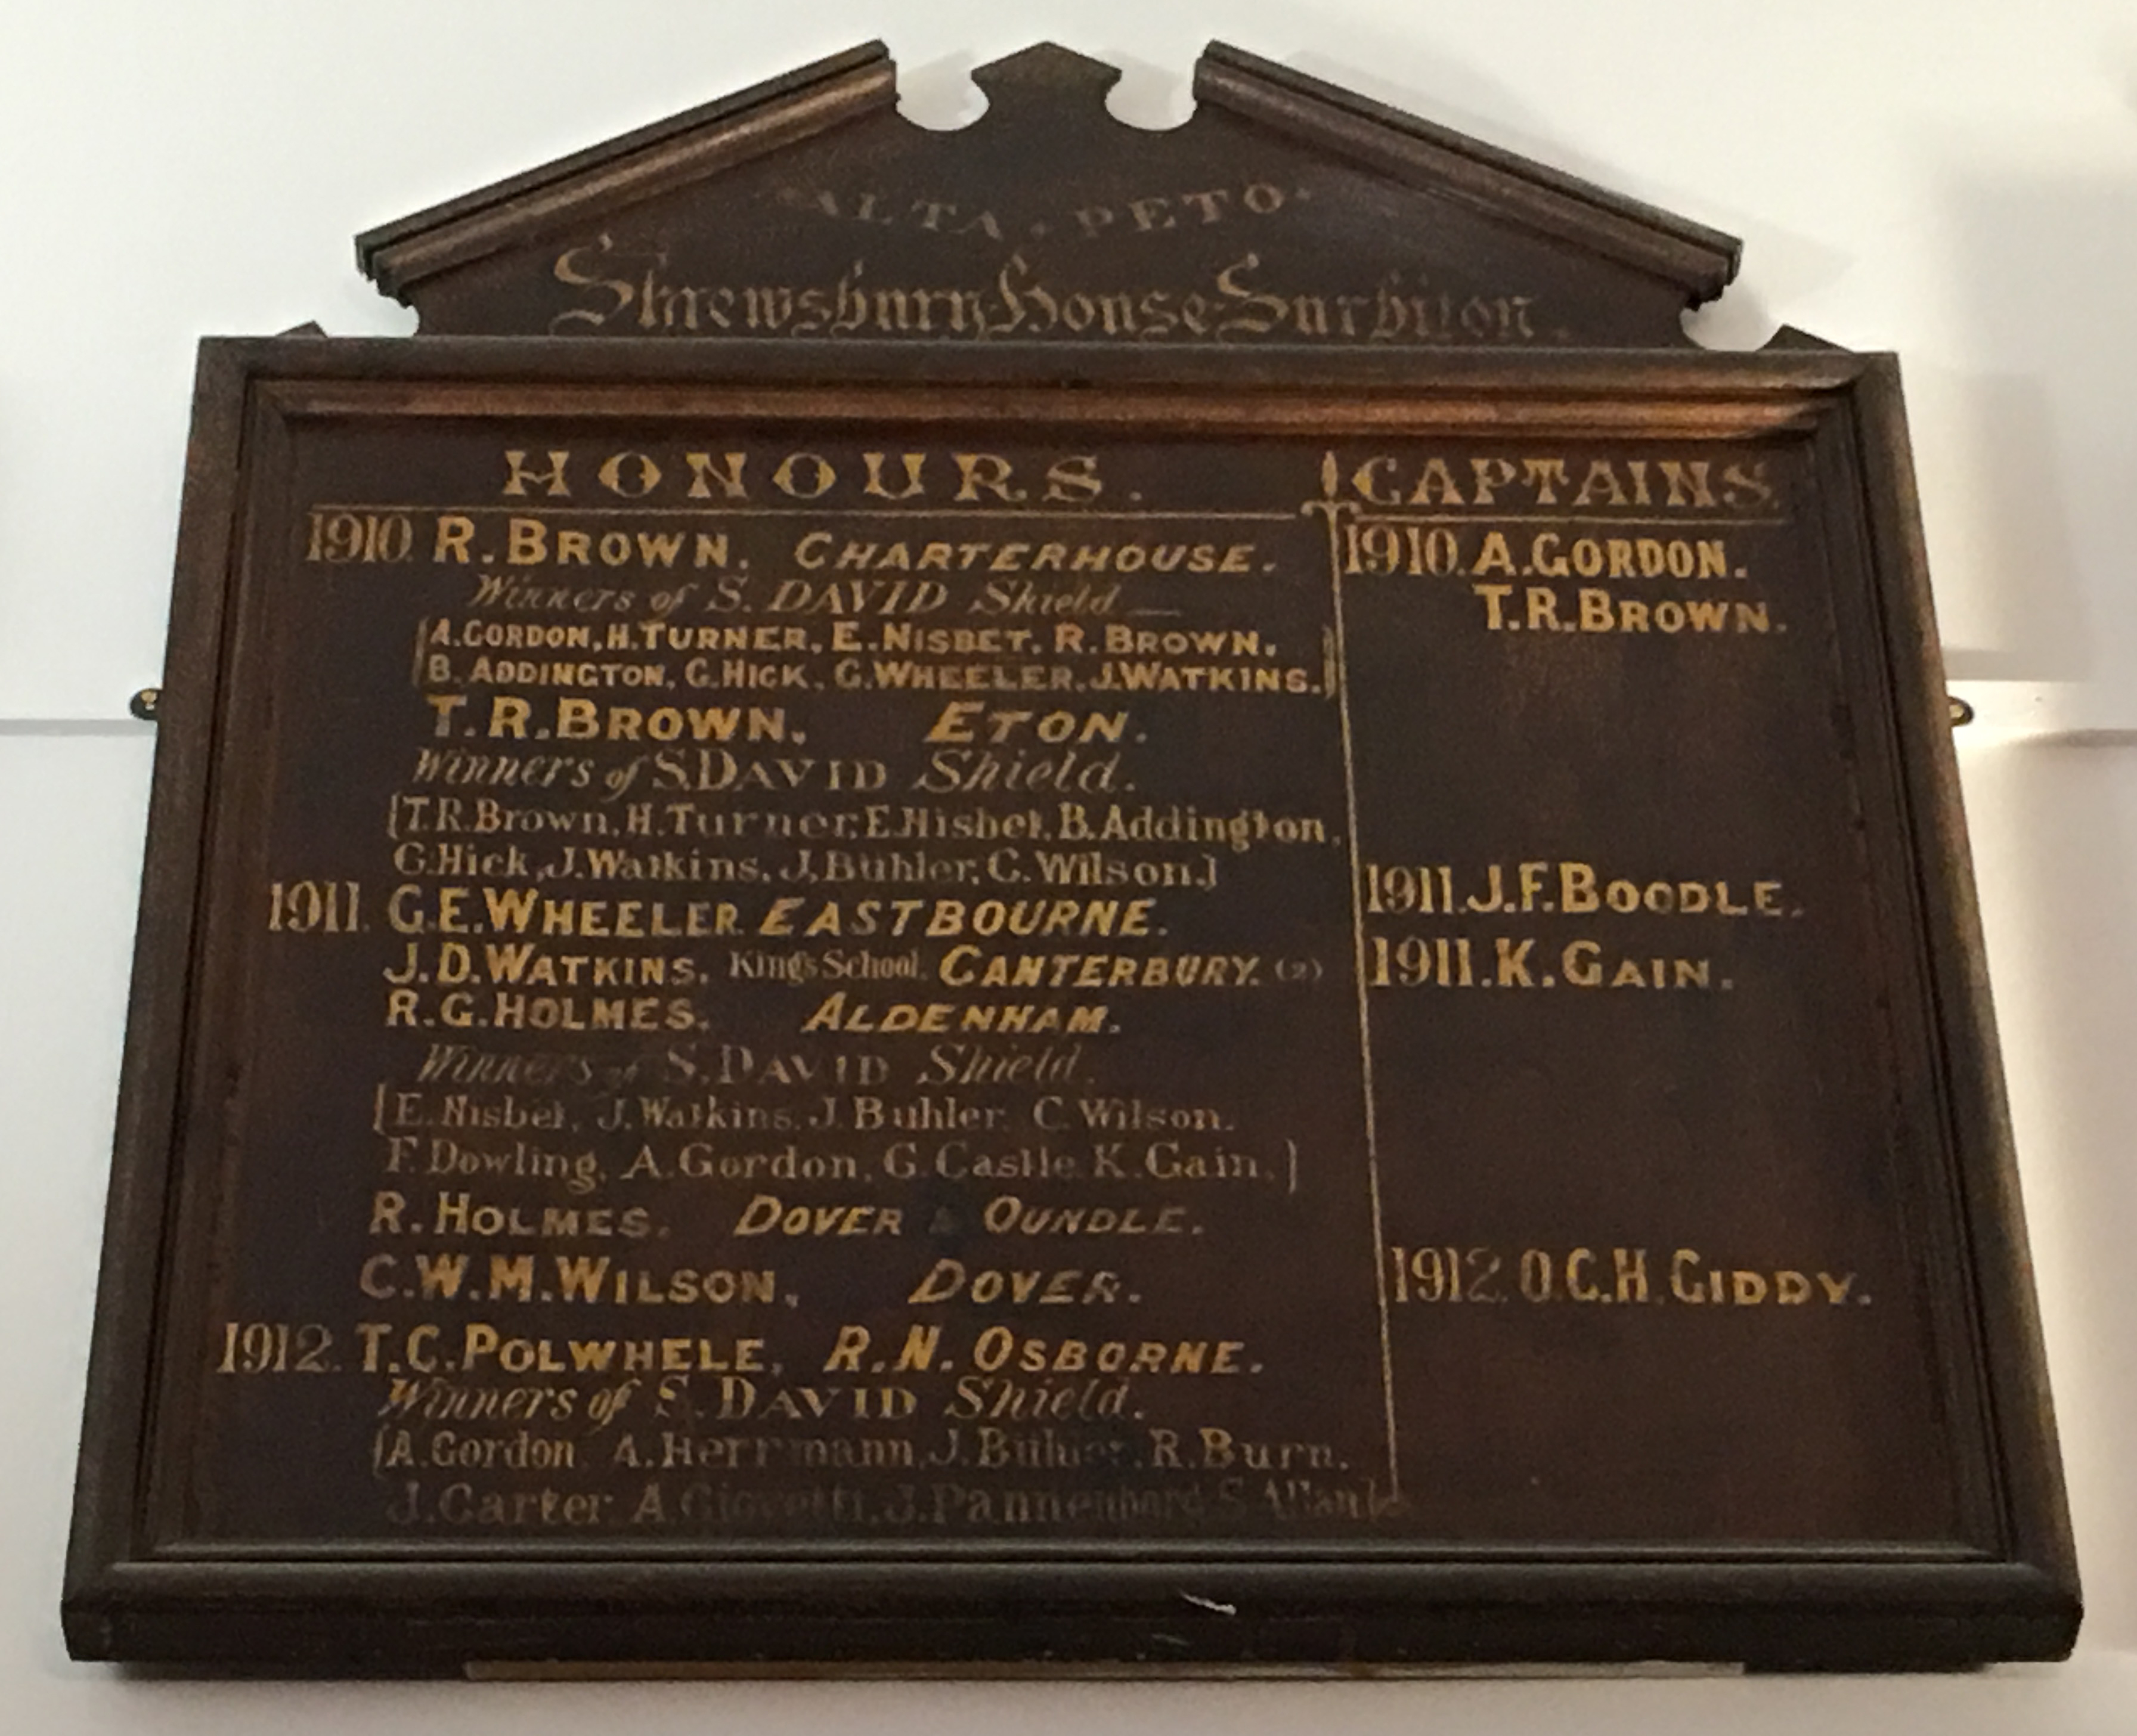 ALTA · PETO ·
Shrewsbury House Surbiton.
HONOURS.
1910. R. BROWN. CHARTERHOUSE.
Winners of S. DAVID Shield
[A. GORDON, H. TURNER, E. NISBET, R. BROWN,
B. ADDINGTON, G. HICK, G. WHEELER, J. WATKINS.]
T. R. BROWN, ETON.
Winners of S. DAVID Shield.
[T.R. Brown, H. Turner, E. Nisbet, B. Addington,
G. Hick, J. Watkins, J. Buhler, C. Wilson.]
1911. G.E. WHEELER. EASTBOURNE.
J.D. WATKINS. King's School. CANTERBURY. (2)
R.G. HOLMES. ALDENHAM.
Winners of S. DAVID Shield.
[E. Nisbet, J. Watkins, J. Buhler, C. Wilson.
F. Dowling, A. Gordon, G. Castle. K. Gain.]
R. HOLMES. DOVER & OUNDLE.
C.W.M. WILSON, DOVER.
1912. T.C. POLWHELE, R.N. OSBORNE.
Winners of S. DAVID Shield.
[A. Gordon A. Herrmann, J. Buhler, R. Burn.
J. Carter A. J. S.
CAPTAINS.
1910. A. GORDON.
T.R. BROWN.
1911. J.F. BOODLE.
1911. K. GAIN.
1912. O.C.H. GIDDY.